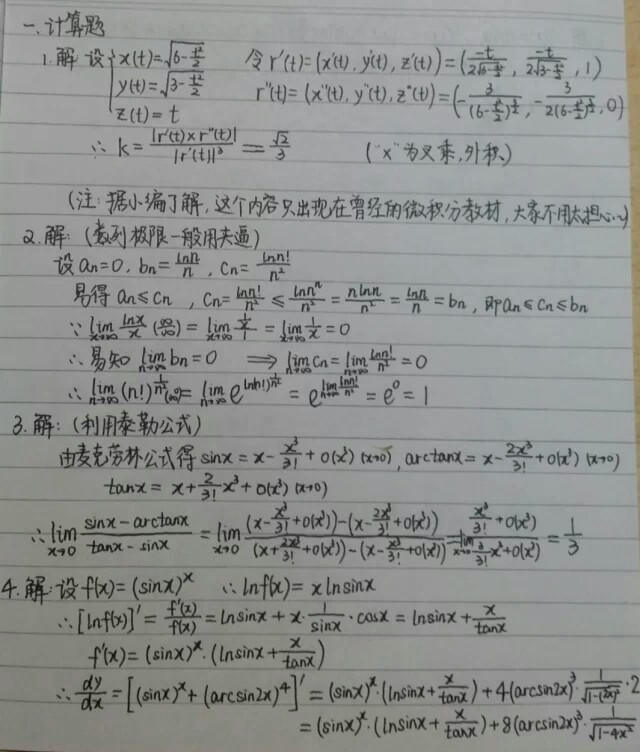 一.计算题
1.解 设 { x(t)=√(6-t²/2) 令 r'(t)=(x'(t), y'(t), z'(t))=(-t/(2√(6-t²/2)), -t/(2√(3-t²/2)), 1)
y(t)=√(3-t²/2) r''(t)=(x''(t), y''(t), z''(t))=(-3/(6-t²/2)^(3/2), -3/(2(6-t²/2)^(3/2)), 0)
z(t)=t
∴ k=|r'(t)×r''(t)|/|r'(t)|³=√2/3 ("×"为叉乘,外积)
(注:据小编了解,这个内容只出现在曾经的微积分教材,大家不用太担心~)
2.解:(数列极限一般用夹逼)
设 an=0, bn=lnn/n, cn=lnn!/n²
易得 an≤cn, cn=lnn!/n²≤lnnⁿ/n²=nlnn/n²=lnn/n=bn, 即an≤cn≤bn
∵ lim(x→∞) lnx/x (∞/∞)=lim(x→∞) (1/x)/1=lim(x→∞) 1/x=0
∴ 易知 lim(n→∞) bn=0 ⟹ lim(n→∞) cn=lim(n→∞) lnn!/n²=0
∴ lim(n→∞) (n!)^(1/n²) (∞⁰)=lim(n→∞) e^(ln(n!)^(1/n²))=e^(lim(n→∞) lnn!/n²)=e⁰=1
3.解:(利用泰勒公式)
由麦克劳林公式得 sinx=x-x³/3!+o(x³) (x→0), arctanx=x-2x³/3!+o(x³) (x→0)
tanx=x+2/3!x³+o(x³) (x→0)
∴ lim(x→0) (sinx-arctanx)/(tanx-sinx)=lim(x→0) ((x-x³/3!+o(x³))-(x-2x³/3!+o(x³)))/((x+2x³/3!+o(x³))-(x-x³/3!+o(x³)))=lim(x→0) (x³/3!+o(x³))/(3/3!x³+o(x³))=1/3
4.解:设 f(x)=(sinx)ˣ ∴ lnf(x)=xlnsinx
∴ [lnf(x)]'=f'(x)/f(x)=lnsinx+x·1/sinx·cosx=lnsinx+x/tanx
f'(x)=(sinx)ˣ·(lnsinx+x/tanx)
∴ dy/dx=[(sinx)ˣ+(arcsin2x)⁴]'=(sinx)ˣ·(lnsinx+x/tanx)+4(arcsin2x)³·1/√(1-(2x)²)·2
=(sinx)ˣ·(lnsinx+x/tanx)+8(arcsin2x)³·1/√(1-4x²)